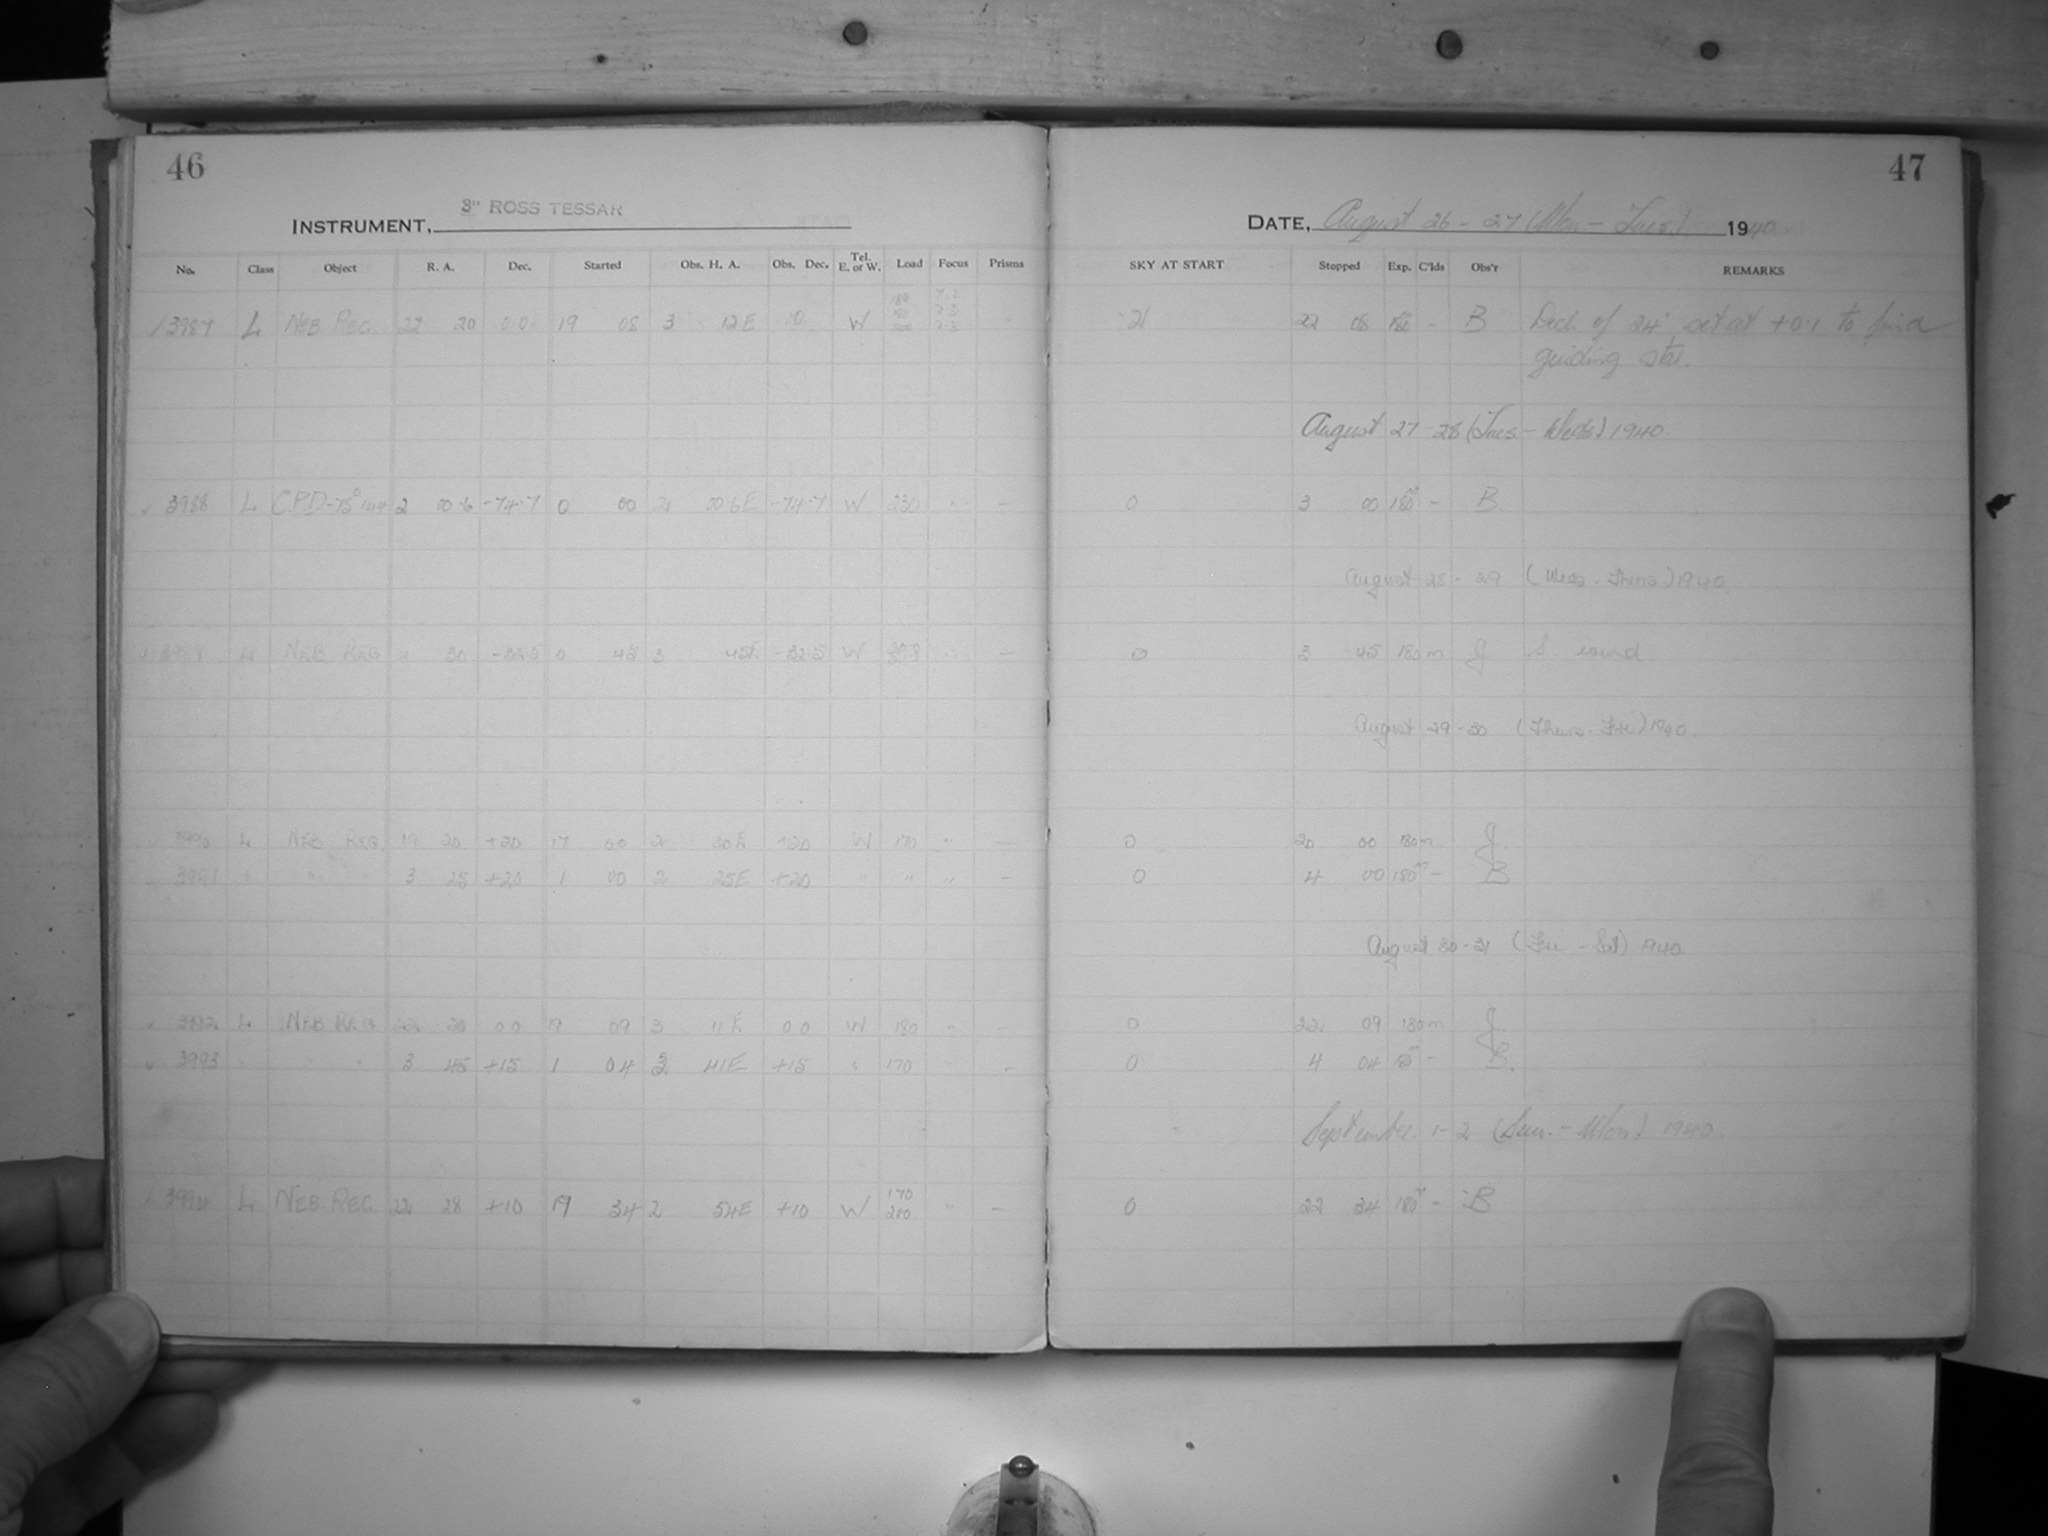 46
INSTRUMENT, 3" ROSS TESSAR
No. Class Object R. A. Dec. Started Obs. H. A. Obs. Dec. Tel. E. or W. Load Focus Prisms
3987 L NEB REG. 22 20 00 19 08 3 12E 0 W
3988 L C.P.D-75° 2 00.6 -74.7 0 00 2 00.6E -74.7 W 230 " —
L NEB REG 30 -32.5 0 45 3 45E -32.5 W " —
3990 L NEB REG 19 20 +20 17 00 2 20E +20 W 170 " —
3991 " " " 3 25 +20 1 00 2 25E +20 " " " —
3992 L NEB REG 22 20 00 19 09 3 11E 00 W 180 " —
3993 " " " 3 45 +15 1 04 2 41E +15 " 170 " —
3994 L NEB. REG. 22 28 +10 19 34 2 54E +10 W 170 200 " —
47
DATE, August 26 - 27 (Mon. - Tues.) 1940
SKY AT START Stopped Exp. C'lds Obs'r REMARKS
21 22 08 180 - B Decl. of 24" set at +0.1 to find
guiding star.
August 27-28 (Tues. - Weds) 1940.
0 3 00 180m - B.
August 28 - 29 (Weds. - Thurs) 1940
0 3 45 180m J S. wind
August 29-30 (Thurs. - Fri) 1940.
0 20 00 180m J.
0 4 00 180m - B
August 30-31 (Fri - Sat) 1940
0 22 09 180m J
0 4 04 180m - B.
September. 1-2 (Sun. - Mon.) 1940.
0 22 34 180m - B